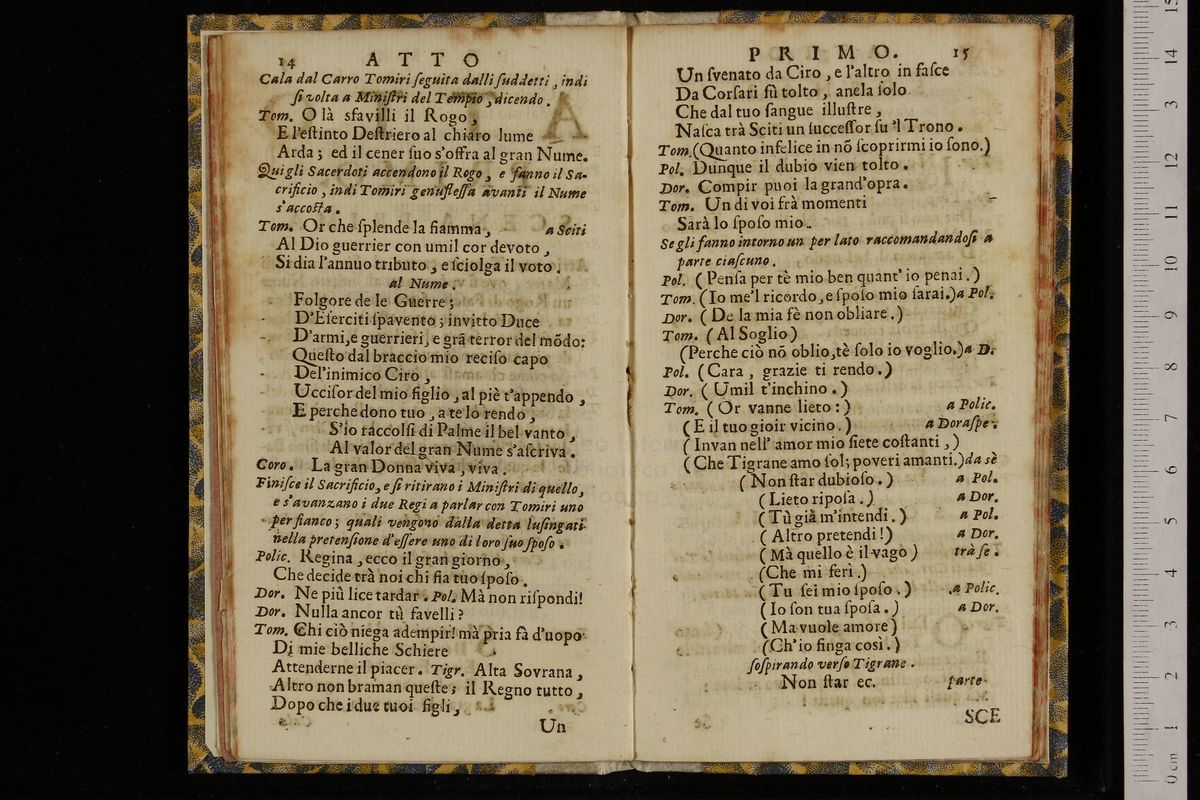 14 ATTO
Cala dal Carro Tomiri ſeguita dalli ſuddetti, indi
ſi volta a Miniſtri del Tempio, dicendo.
Tom. O là sfavilli il Rogo,
E l'eſtinto Deſtriero al chiaro lume
Arda; ed il cener ſuo s'offra al gran Nume.
Qui gli Sacerdoti accendono il Rogo, e fanno il Sa-
crificio, indi Tomiri genufleſſa avanti il Nume
s'accoſta.
Tom. Or che ſplende la fiamma, a Sciti
Al Dio guerrier con umil cor devoto,
Si dia l'annuo tributo, e ſciolga il voto.
al Nume.
Folgore de le Guerre;
D'Eſerciti ſpavento; invitto Duce
D'armi, e guerrieri, e grã terror del mõdo:
Queſto dal braccio mio reciſo capo
Del'inimico Ciro,
Ucciſor del mio figlio, al piè t'appendo,
E perche dono tuo, a te lo rendo,
S'io raccolſi di Palme il bel vanto,
Al valor del gran Nume s'aſcriva.
Coro. La gran Donna viva, viva.
Finiſce il Sacrificio, e ſi ritirano i Miniſtri di quello,
e s'avanzano i due Regi a parlar con Tomiri uno
per fianco; quali vengono dalla detta luſingati
nella pretenſione d'eſſere uno di loro ſuo ſpoſo.
Polic. Regina, ecco il gran giorno,
Che decide trà noi chi fia tuo ſpoſo.
Dor. Ne più lice tardar. Pol. Mà non riſpondi!
Dor. Nulla ancor tù favelli?
Tom. Chi ciò niega adempir! mà pria fà d'uopo
Di mie belliche Schiere
Attenderne il piacer. Tigr. Alta Sovrana,
Altro non braman queſte; il Regno tutto,
Dopo che i due tuoi figli,
Un
PRIMO. 15
Un ſvenato da Ciro, e l'altro in faſce
Da Corſari fù tolto, anela ſolo
Che dal tuo ſangue illuſtre,
Naſca trà Sciti un ſucceſſor ſu 'l Trono.
Tom. (Quanto infelice in nõ ſcoprirmi io ſono.)
Pol. Dunque il dubio vien tolto.
Dor. Compir puoi la grand'opra.
Tom. Un di voi frà momenti
Sarà lo ſpoſo mio.
Se gli fanno intorno un per lato raccomandandoſi a
parte ciaſcuno.
Pol. (Penſa per tè mio ben quant' io penai.)
Tom. (Io me'l ricordo, e ſpoſo mio ſarai.) a Pol.
Dor. (De la mia fè non obliare.)
Tom. (Al Soglio)
(Perche ciò nõ oblio, tè ſolo io voglio.) a D.
Pol. (Cara, grazie ti rendo.)
Dor. (Umil t'inchino.)
Tom. (Or vanne lieto:) a Polic.
(E il tuo gioir vicino.) a Doraſpe.
(Invan nell' amor mio ſiete coſtanti,)
(Che Tigrane amo ſol; poveri amanti.) da sè
(Non ſtar dubioſo.) a Pol.
(Lieto ripoſa.) a Dor.
(Tù già m'intendi.) a Pol.
(Altro pretendi!) a Dor.
(Mà quello è il vago) trà ſe.
(Che mi ferì.)
(Tu ſei mio ſpoſo.) a Polic.
(Io ſon tua ſpoſa.) a Dor.
(Ma vuole amore)
(Ch'io finga così.)
ſoſpirando verſo Tigrane.
Non ſtar ec. parte
SCE